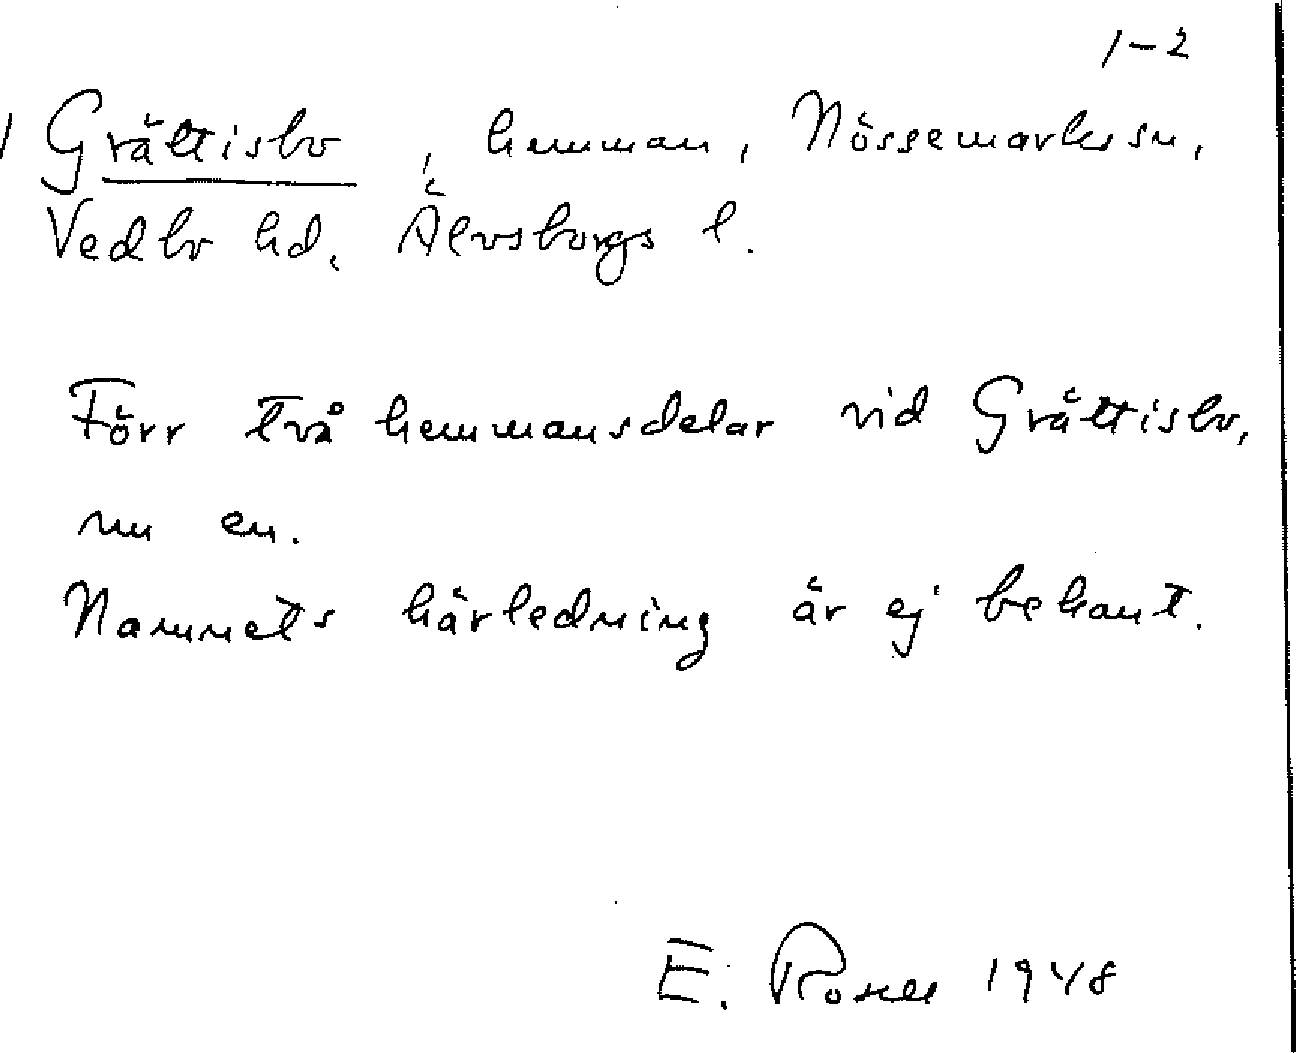 1-2
Grättisbo, hemman, Nössemarks sn,
Vedbo hd, Älvsborgs l.
Förr två hemmansdelar vid Grättisbo,
nu en.
Namnets härledning är ej bekant.
E. Rosell 1948